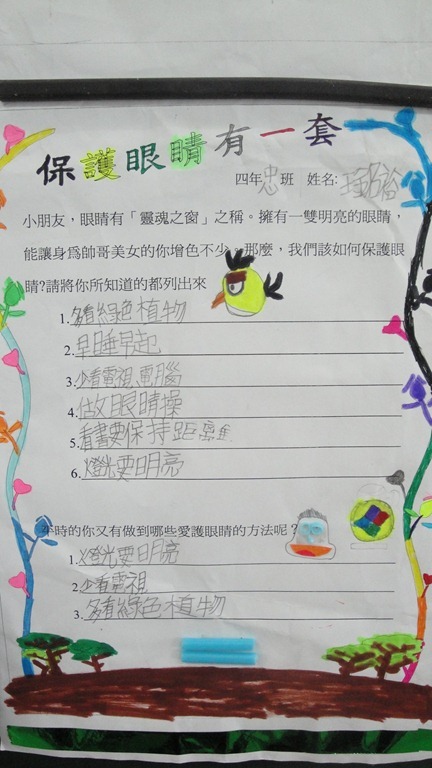 保護眼睛有一套
四年忠班 姓名:
小朋友，眼睛有「靈魂之窗」之稱。擁有一雙明亮的眼睛，
能讓身為帥哥美女的你增色不少。那麼，我們該如何保護眼
睛?請將你所知道的都列出來
1.多看綠色植物
2.早睡早起
3.少看電視、電腦
4.做眼睛操
5.看書要保持距離
6.燈光要明亮
平時的你又有做到哪些愛護眼睛的方法呢？
1.燈光要明亮
2.少看電視
3.多看綠色植物